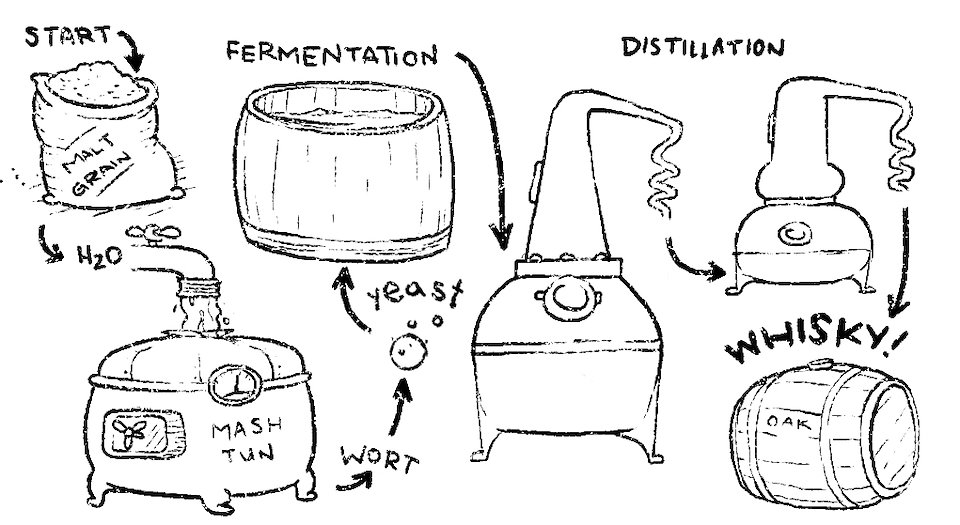 START
MALT
GRAIN
H2O
MASH
TUN
WORT
yeast
FERMENTATION
DISTILLATION
WHISKY!
OAK